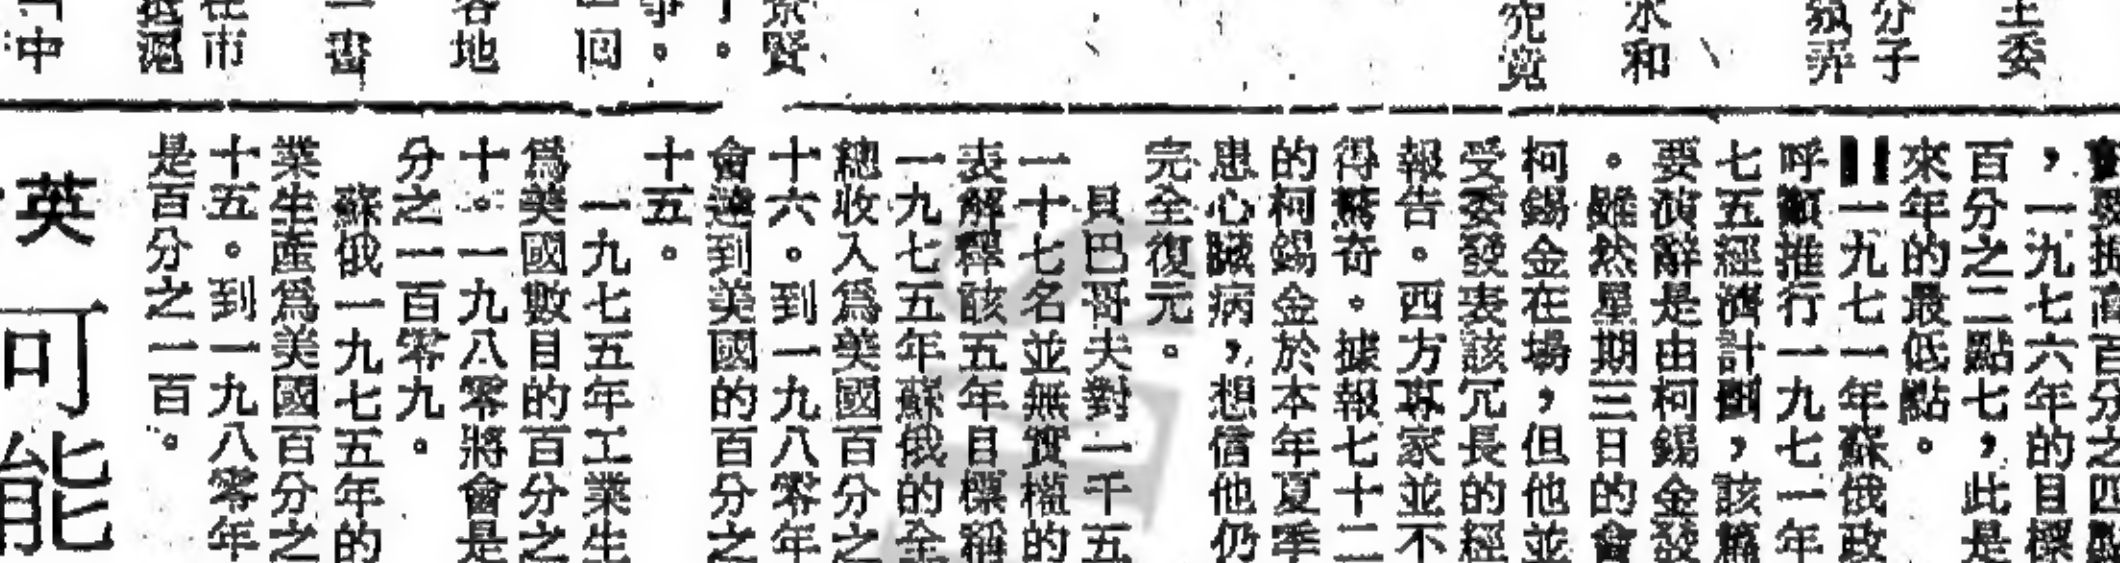 主委
分子
永和
景賢
事。
各地
一書
在市
中
，一九七六年的目標
百分之二點七，此是
來年的最低點。
一九七一年蘇俄政
呼籲推行一九七一年
七五經濟計劃，該篇
要演辭是由柯錫金發
。雖然星期三日的會
柯錫金在場，但他並
受委發表該冗長的經
報告。西方專家並不
得驚奇。據報七十二
的柯錫金於本年夏季
患心臟病，想信他仍
完全復元。
具巴哥夫對一千五
一十七名並無實權的
表解釋該五年目標稱
一九七五年蘇俄的全
總收入為美國百分之
十六。到一九八零年
會達到美國的百分之
十五。
一九七五年工業生
為美國數目的百分之
十。一九八零將會是
分之一百零九。
蘇俄一九七五年的
業生產為美國百分之
十五。到一九八零年
是百分之一百。
英可能